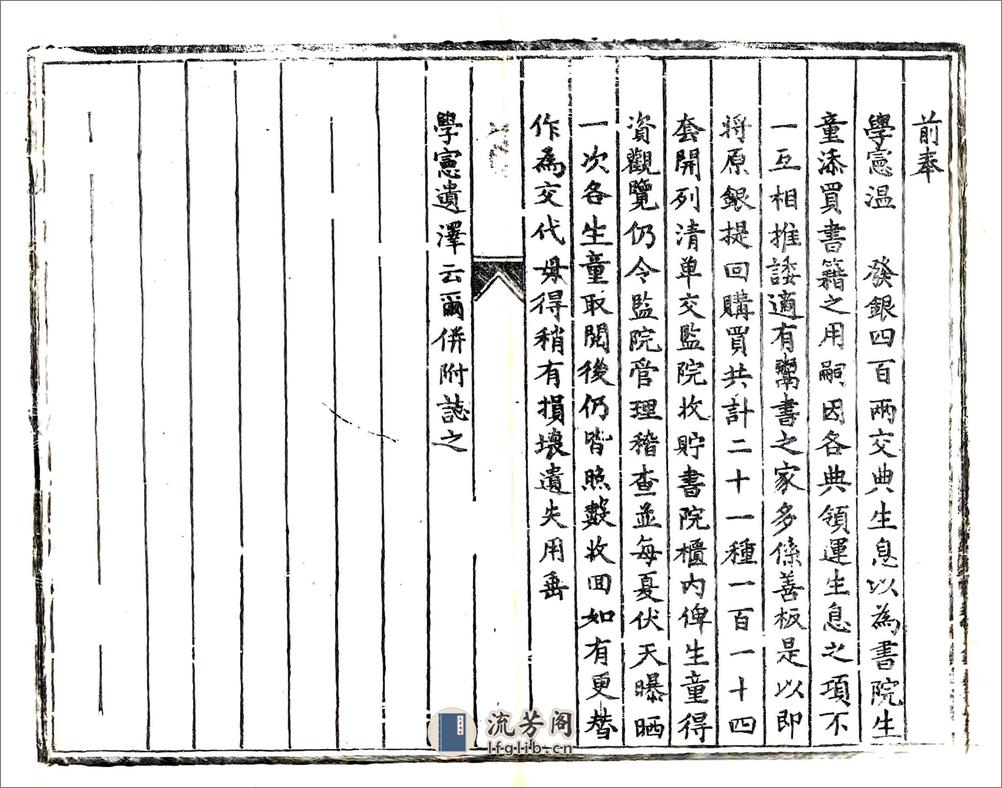 前奉
學憲温　發銀四百兩交典生息以為書院生
童添買書籍之用嗣因各典領運生息之項不
一互相推諉適有鬻書之家多係善板是以即
將原銀提回購買共計二十一種一百一十四
套開列清單交監院收貯書院櫃內俾生童得
資觀覽仍令監院管理稽查並每夏伏天曝晒
一次各生童取閱後仍皆照數收回如有更替
作為交代毋得稍有損壞遺失用垂
學憲遺澤云爾併附誌之
流芳阁
lfglib.cn